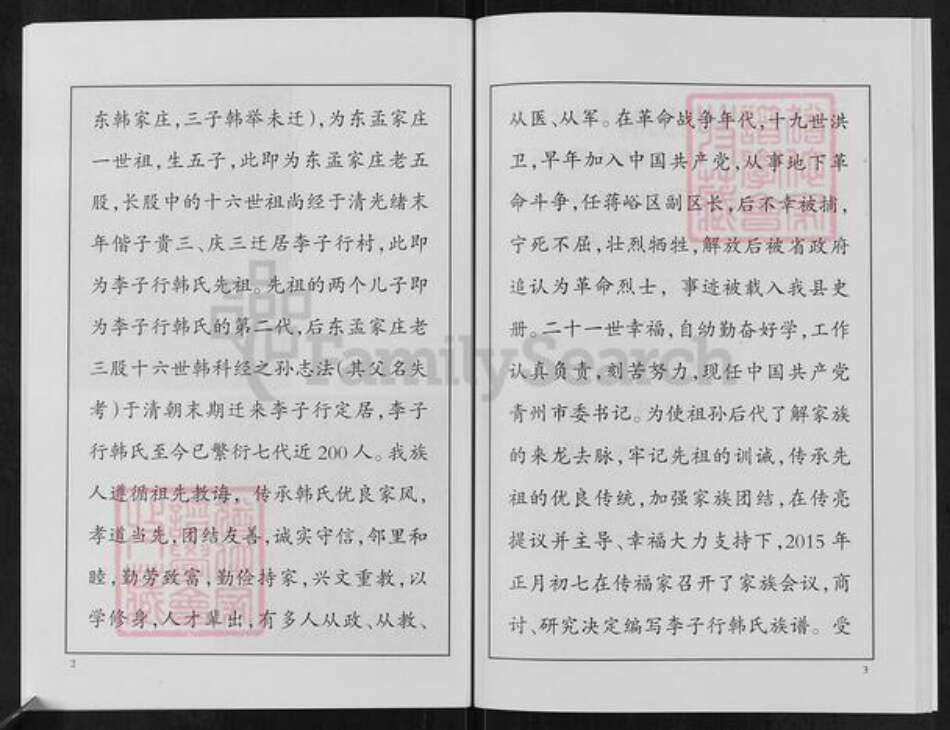 东韩家庄,三子韩举未迁),为东孟家庄
一世祖,生五子,此即为东孟家庄老五
股,长股中的十六世祖尚经于清光绪末
年偕子贵三、庆三迁居李子行村,此即
为李子行韩氏先祖。先祖的两个儿子即
为李子行韩氏的第二代,后东孟家庄老
三股十六世韩科经之孙志法(其父名失
考)于清朝末期迁来李子行定居,李子
行韩氏至今已繁衍七代近200人。我族
人遵循祖先教诲,传承韩氏优良家风,
孝道当先,团结友善,诚实守信,邻里和
睦,勤劳致富,勤俭持家,兴文重教,以
学修身,人才辈出,有多人从政、从教、
2
从医、从军。在革命战争年代,十九世洪
卫,早年加入中国共产党,从事地下革
命斗争,任蒋峪区副区长,后不幸被捕,
宁死不屈,壮烈牺牲,解放后被省政府
追认为革命烈士,事迹被载入我县史
册。二十一世幸福,自幼勤奋好学,工作
认真负责,刻苦努力,现任中国共产党
青州市委书记。为使祖孙后代了解家族
的来龙去脉,牢记先祖的训诫,传承先
祖的优良传统,加强家族团结,在传亮
提议并主导、幸福大力支持下,2015年
正月初七在传福家召开了家族会议,商
讨、研究决定编写李子行韩氏族谱。受
3
FamilySearch